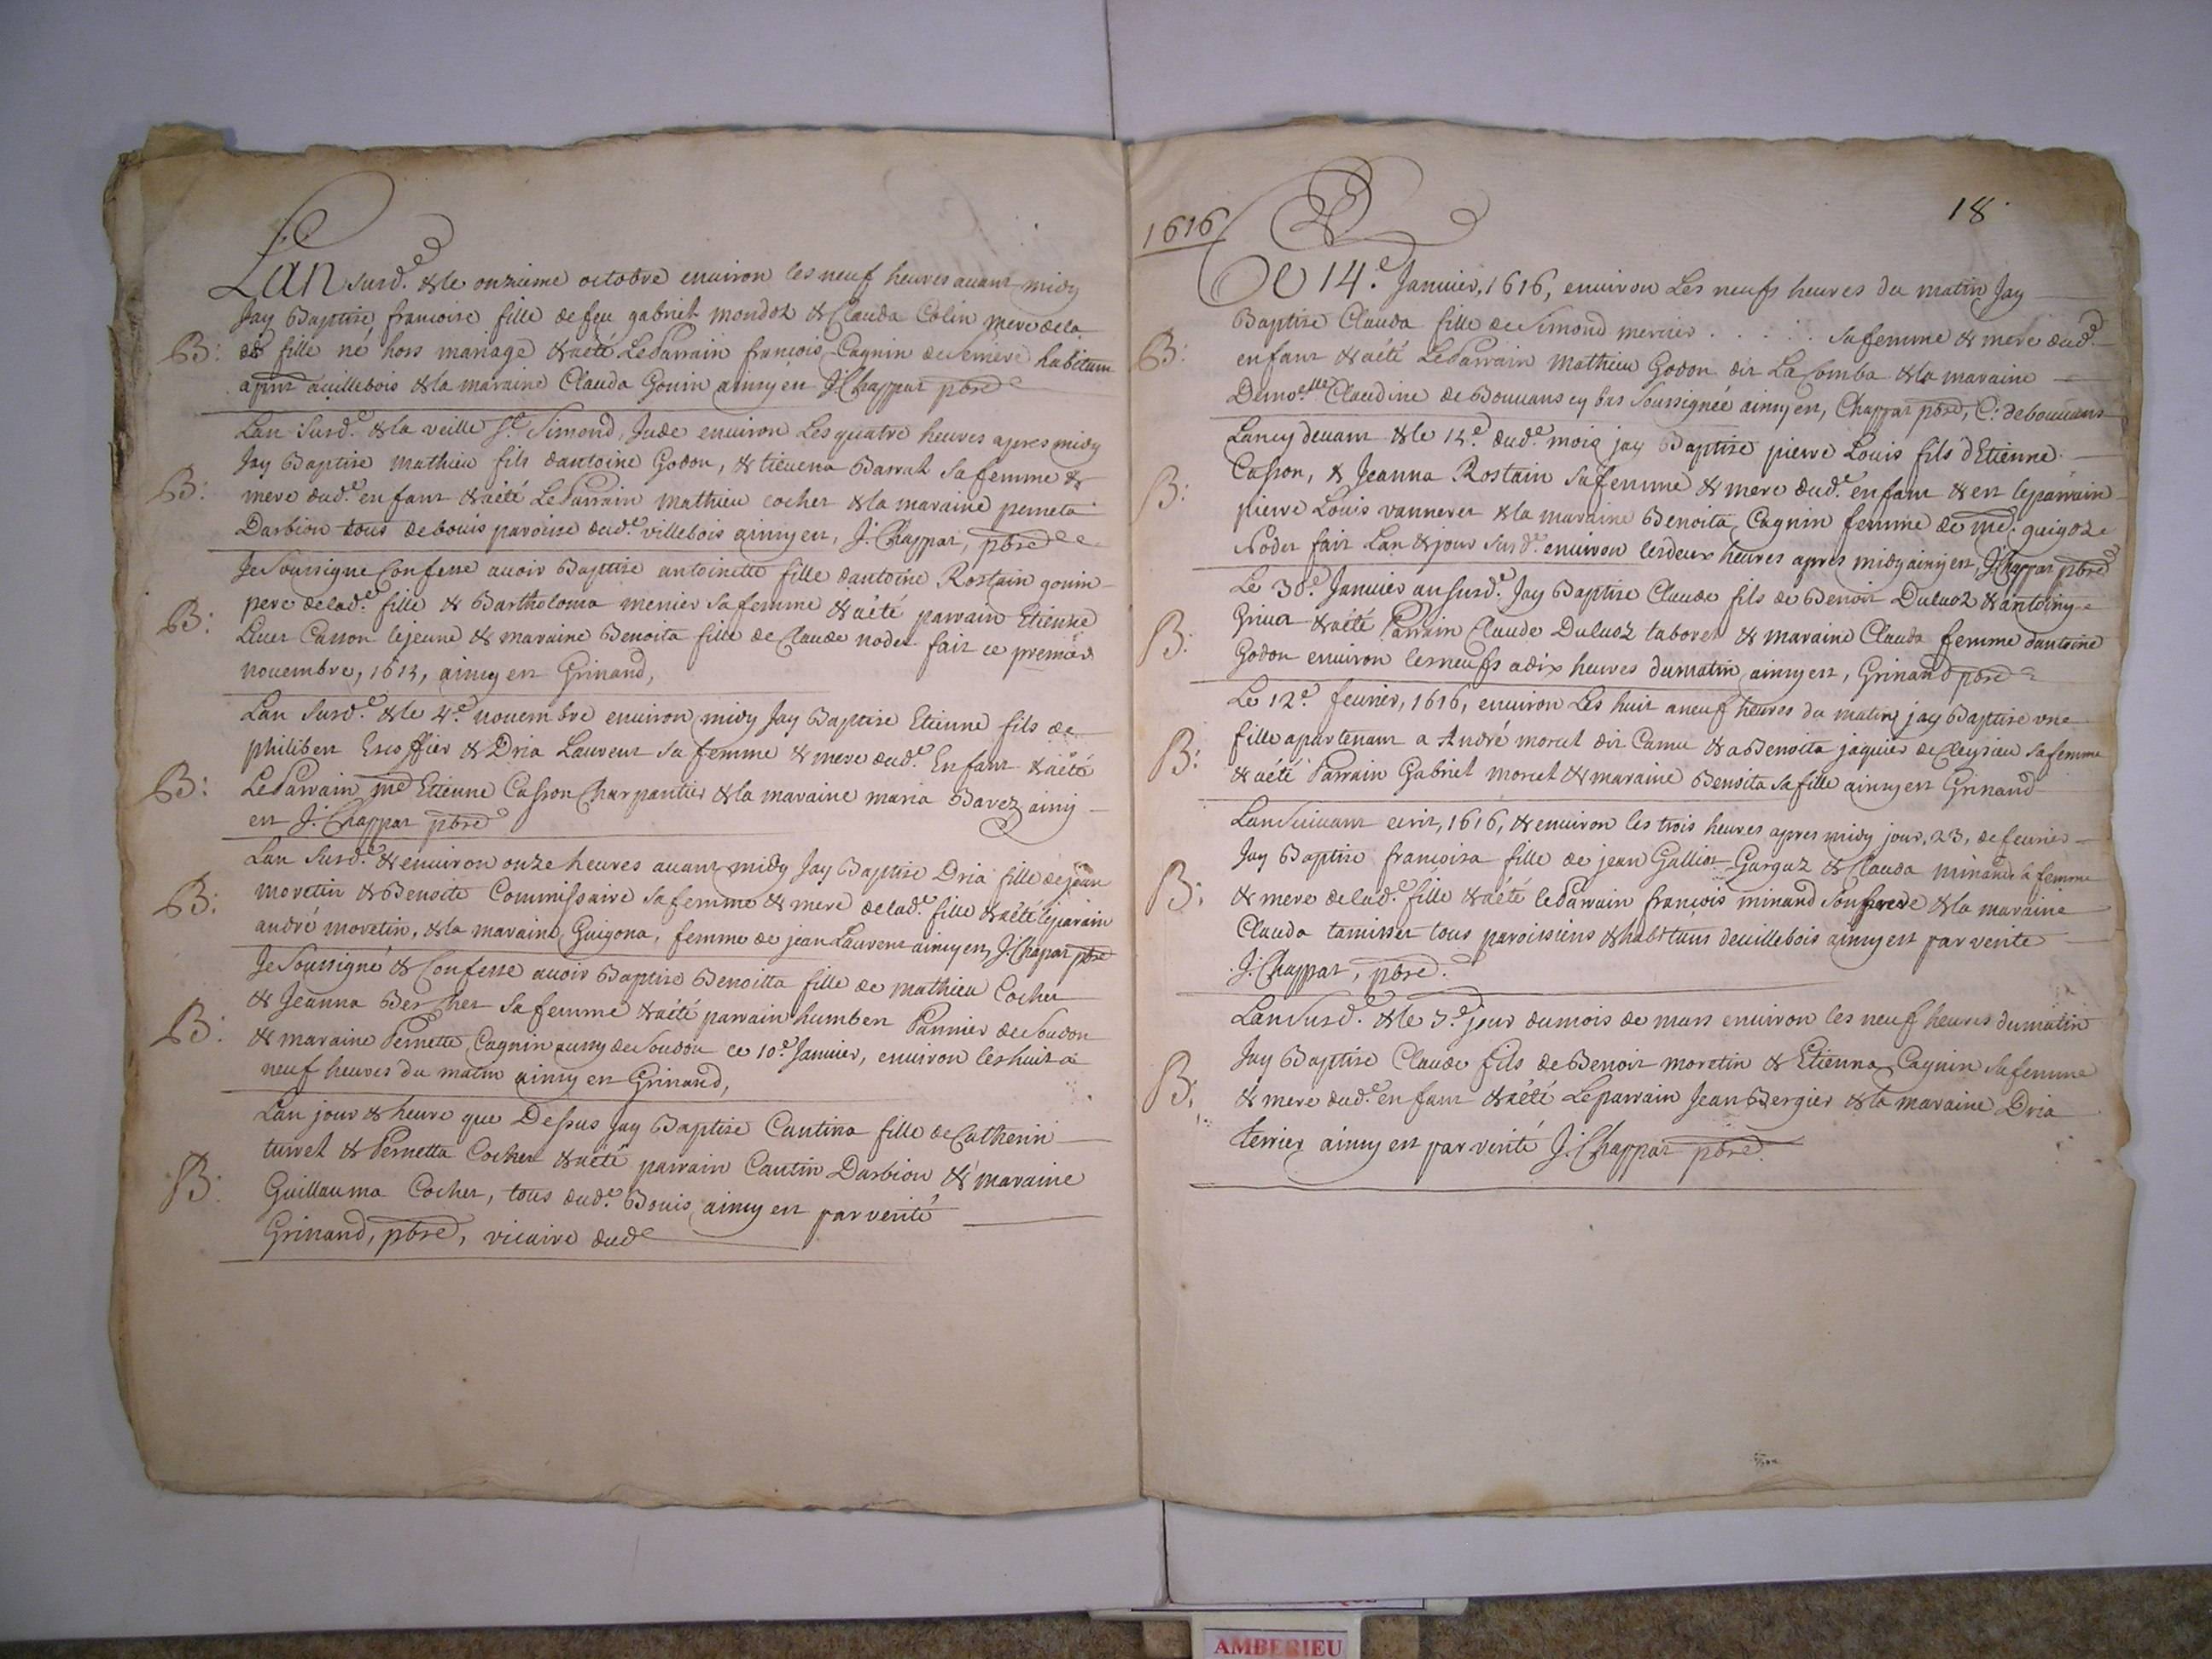 Lan susd.e & le onzieme octobre environ les neuf heures avant midy
Jay Baptisé francoise fille de feu gabriel mondoz & Clauda Colin mere de la
B: dt fille né hors mariage & a été Le Parrain francois Cagnin de Seniere habitum
a villebois & la maraine Clauda Gonin ainsy en J: Chappat pbre
Lan Susd.e & la veille St. Simond, Jude environ Les quatre heures apres midy
Jay Baptise mathieu fils dantoine Godon, & tievena Barrat Sa femme &
B: mere dud.e enfant & a été Le Parrain mathieu cocher & la maraine perneta
Darbion tous de bouis paroisse dud.e villebois ainsy est, J: Chappat, pbre
Je Soussigne Confesse avoir Baptise antoinette fille dantoine Rostain gonin
pere de lad.e fille & Bartholoma menier Sa femme & a été parrain Etienne
B: Luer Casson le jeune & maraine Benoita fille de Claude nodet fait ce premier
novembre, 1615, ainsy est Grinand,
Lan Susd.e & le 4.e novembre environ midy Jay Baptise Etienne fils de
philibert Escoffier & Dria Laurent Sa femme & mere dud.e Enfant & a été
B: Le Parrain me Etienne Casson Charpantier & la maraine maria Bavez ainsy
est J: Chappat pbre
Lan Susd.e & environ onze heures avant midy Jay Baptise Dria fille de jean
B: moretin & Benoite Commissaire Sa femme & mere de lad.e fille & a été le parain
andré moretin, & la maraine Guigona, femme de jean Laurent ainsy est, J: Chapat pbre
Je Soussigné & Confesse avoir Baptise Benoitta fille de mathieu Cocher
& Jeanna Bercher Sa femme & a été parrain humbert Pannier de Soudon
B: & maraine Pernette Cagnin aussy de Soudon ce 10.e Janvier, environ les huit a
neuf heures du matin ainsy est Grinand,
Lan jour & heure que Dessus Jay Baptise Cantina fille de Catherin
turret & Pernetta Cocher & a été parrain Cantin Darbion & maraine
B: Guillauma Cocher, tous dud.e Bouis ainsy est par verité
Grinand, pbre, vicaire dud.e
1616
18
Le 14.e Janvier, 1616, environ Les neufs heures du matin Jay
Baptise Clauda fille de Simond mercier . . . . . sa femme & mere dud.e
B: enfant & a été Le Parrain mathieu Godon dit La Comba & la maraine
Demo.elle Claudine de Bouvans cy bas Soussignée ainsy est, Chappat pbre, C: debouvans
Lan cy devant & le 15.e dud.e mois jay Baptise pierre Louis fils dEtienne
B: Casson, & Jeanna Rostain Sa femme & mere dud.e enfant & est le parrain
pierre Louis vanneret & la maraine Benoita Cagnin femme de me. guigoz
Nodet fait Lan & jour Susd.e environ les deux heures apres midy ainsy est, J: Chappat pbre
Le 30.e Janvier an susd.e Jay Baptise Claude fils de Benoit Duluoz & antoiny
B: Griua & a été Parrain Claude Duluoz taboret & maraine Clauda femme dantoine
Godon environ les neufs a dix heures du matin ainsy est, Grinand pbre
Le 12.e fevrier, 1616, environ Les huit a neuf heures du matin jay Baptise vne
B: fille apartenant a André morut dit Camu & a Benoita jaquier de Cleysieu Sa femme
& a été Parrain Gabriel moruet & maraine Benoita Sa fille ainsy est Grinand
Lan Suivant ecrit, 1616, & environ les trois heures apres midy jour, 23, de fevrier
Jay Baptise francoisa fille de jean Galliot Gargaz & Clauda minand sa femme
B: & mere de lad.e fille & a été le Parrain francois minand Son frere & la maraine
Clauda tamisser tous paroissiens & habitans de villebois ainsy est par verite
J: Chappat, pbre.
Lan Susd.e & le 5.e jour du mois de mars environ les neuf heures du matin
Jay Baptise Claude fils de Benoit moretin & Etienna Cagnin Sa femme
B: & mere dud.e enfant & a été Le parrain Jean Bergier & la maraine Dria
terrier ainsy est par verité J: Chappat pbre.
AMBERIEU